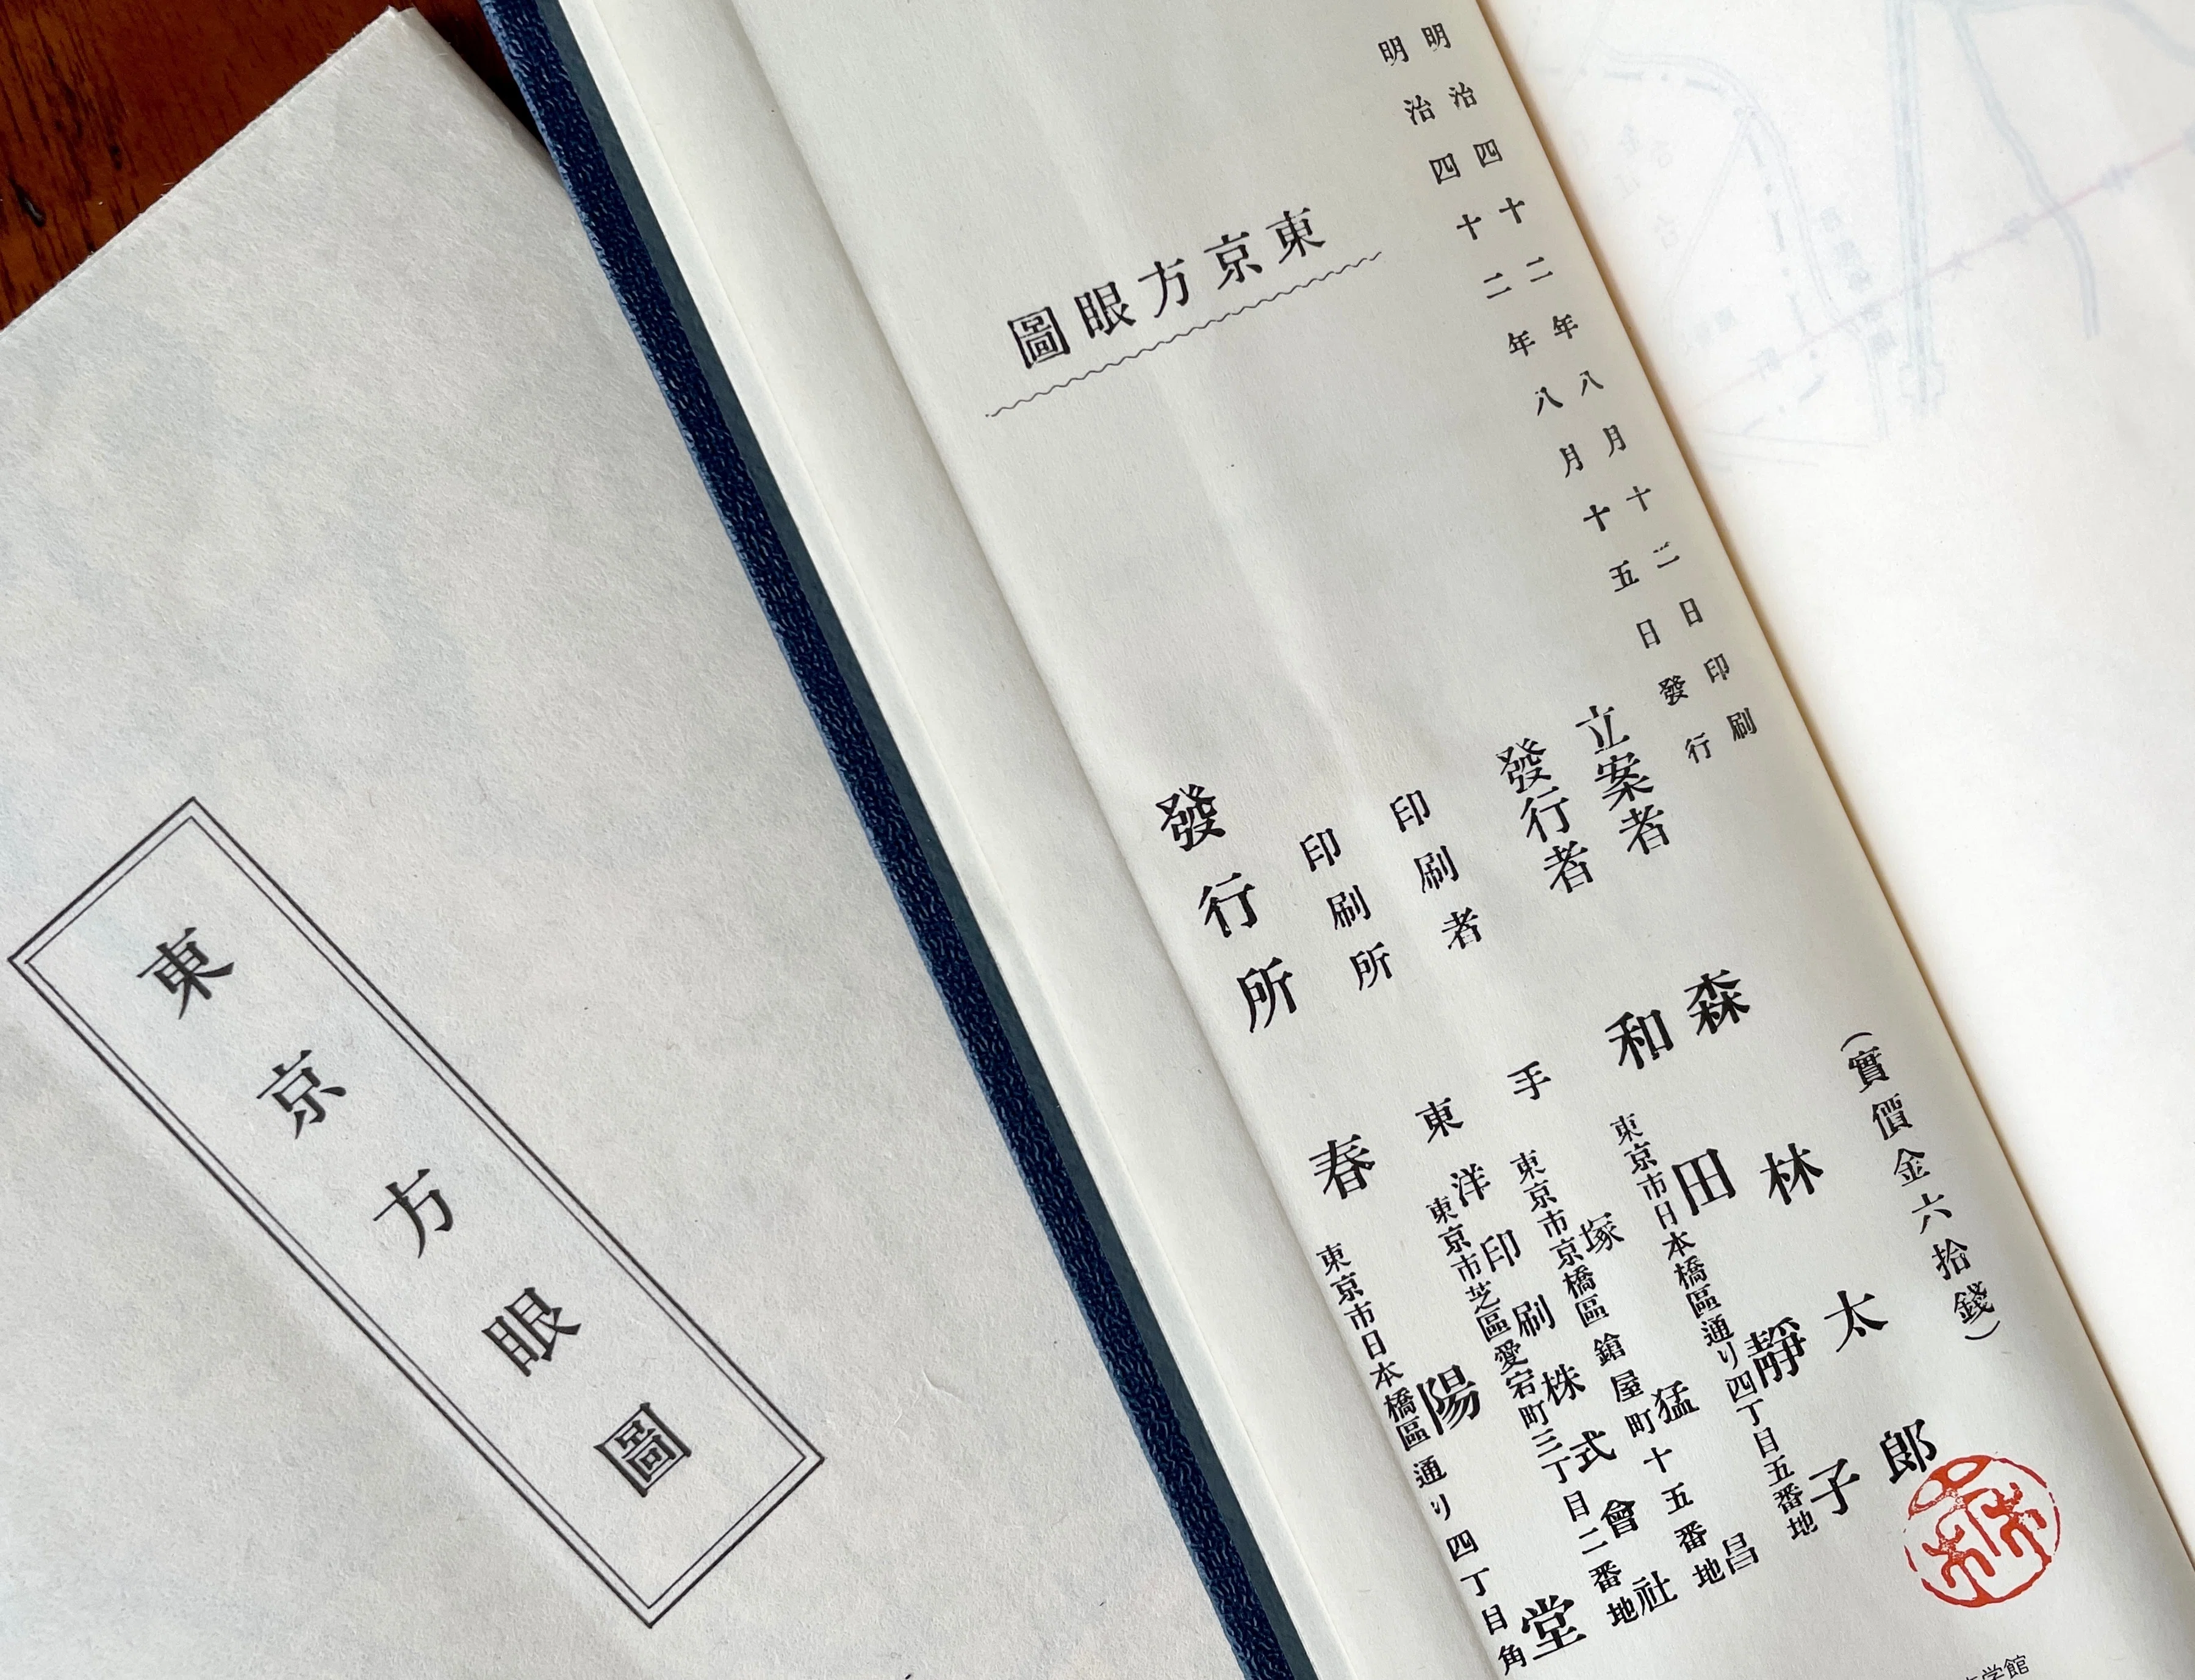 東京方眼圖
明治四十二年八月十二日印刷
明治四十二年八月十五日發行
(實價金六拾錢)
立案者 森林太郎
發行者 和田靜子
東京市日本橋區通り四丁目五番地
印刷者 手塚猛昌
東京市京橋區鎗屋町十五番地
印刷所 東洋印刷株式會社
東京市芝區愛宕町三丁目二番地
發行所 春陽堂
東京市日本橋區通り四丁目角
東京方眼圖
学館